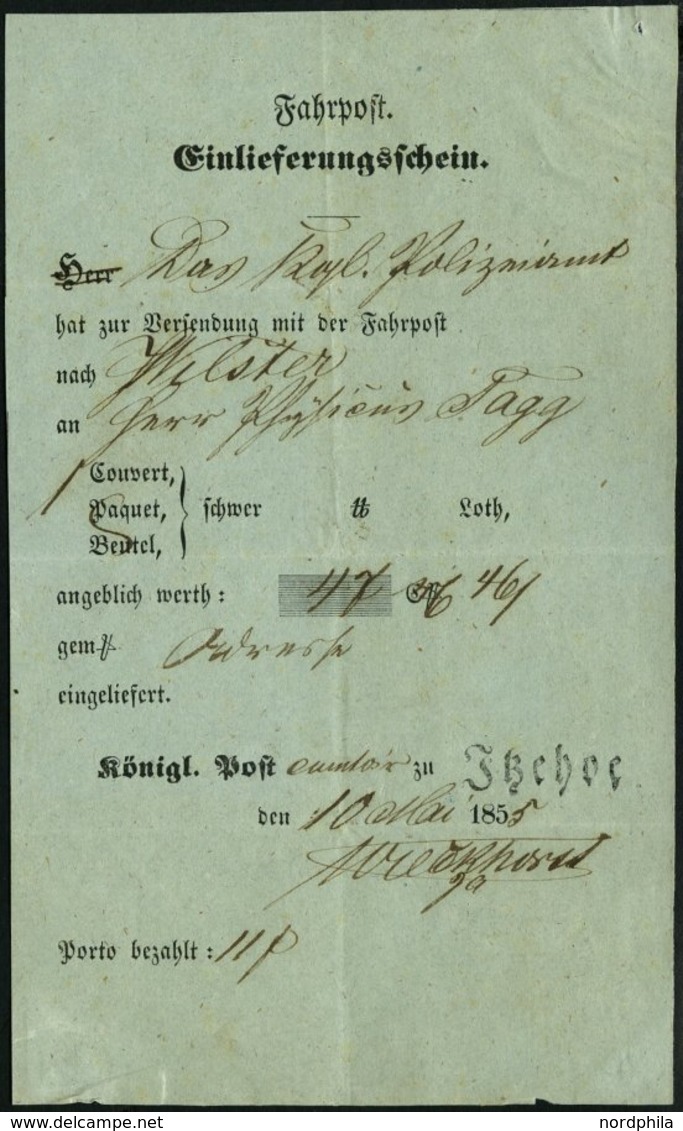 Fahrpost.
Einlieferungsschein.
Herr Das Kgl. Polizeiamt
hat zur Versendung mit der Fahrpost
nach Wilster
an Herr Physicus Tagg
Couvert,
Paquet, schwer ℔ Loth,
Beutel,
angeblich werth: 47 46
gem Adresse
eingeliefert.
Königl. Post comtoir zu Itzehoe
den 10 Mai 1855
Porto bezahlt: 11
nordphila